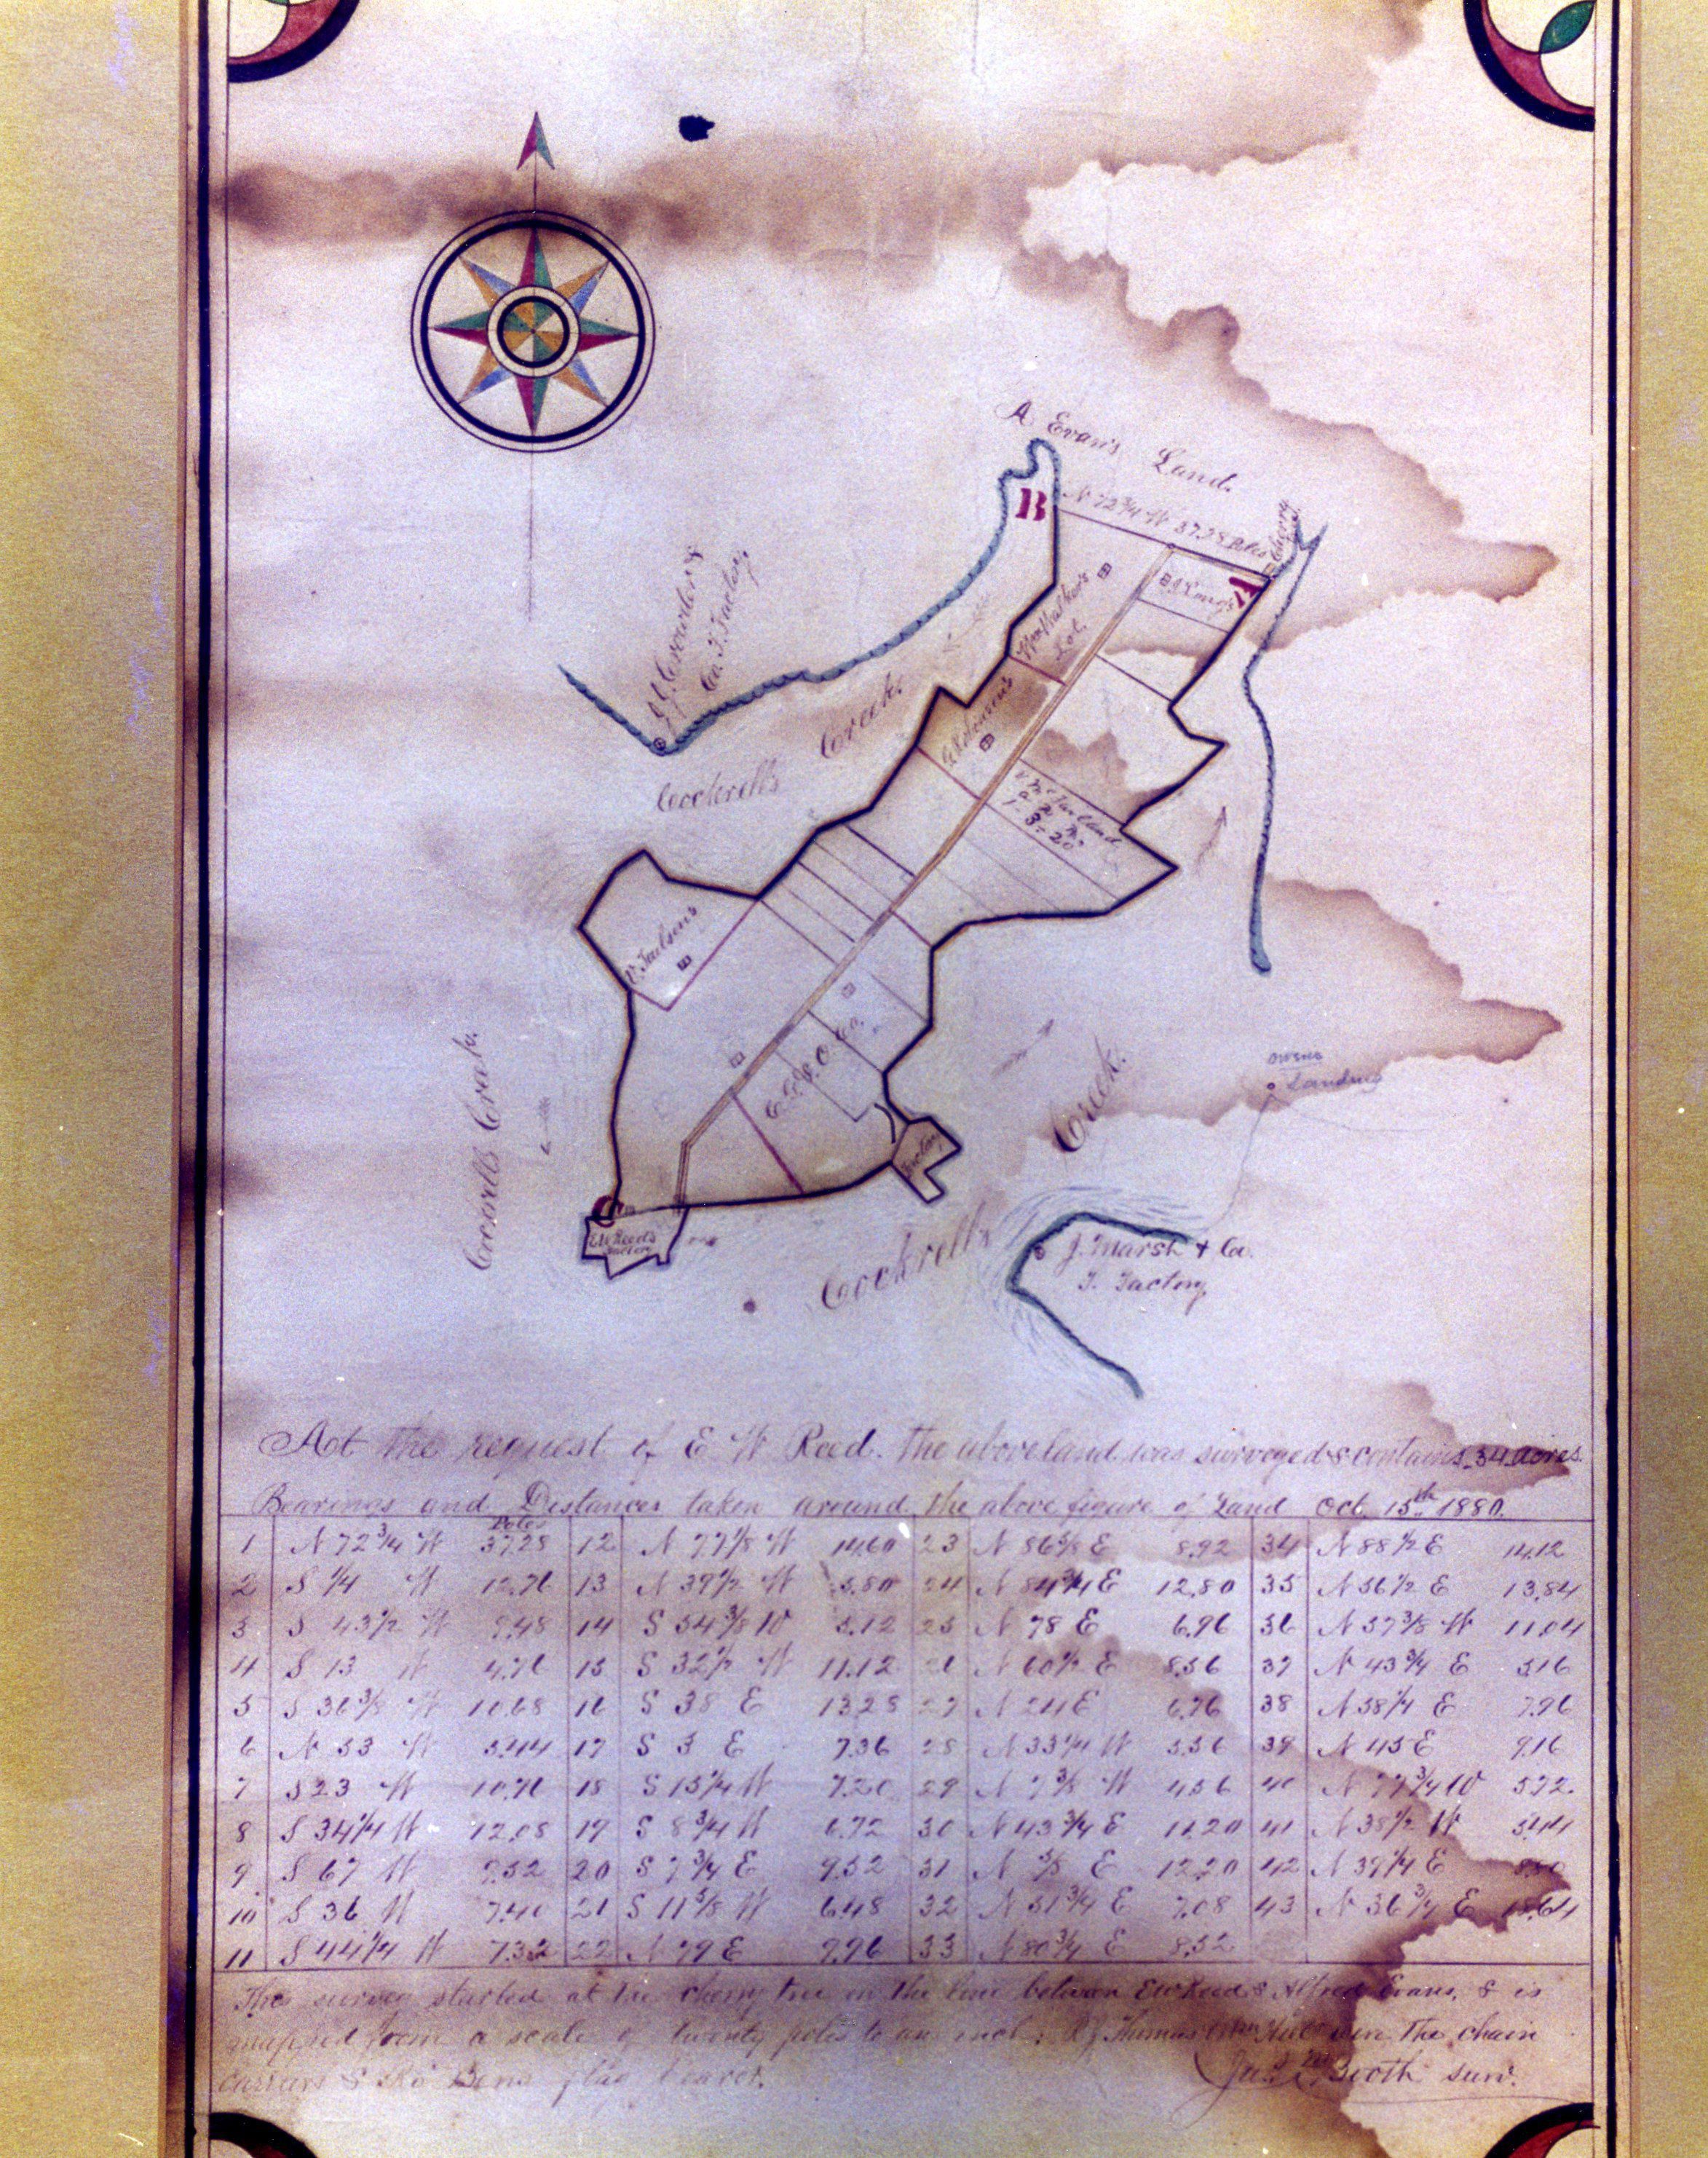 A. Evan's Land.
B
N 72 3/4 W 37.28 Poles
Cherry T.
A
Lot.
Cockrell's Creek.
V. McFarland
a R P.
1 - 3 - 20
Cockrells Creek.
Factory
E W Reed's
Factory
Cockrells Creek.
Owens
Landing
J. Marsh & Co.
F. Factory.
Aot the request of E W Reed. the above land was surveyed & contains 34 acres.
Bearings and Distances taken around the above figure of Land Oct. 15th 1880.
Poles
1 N 72 3/4 W 37.28 12 N 77 1/8 W 14.60 23 N 86 5/8 E 8.92 34 N 88 1/2 E 14.12
2 S 1/4 W 12.76 13 N 39 1/2 W 5.80 24 N 84 3/4 E 12.80 35 N 56 1/2 E 13.84
3 S 43 1/2 W 9.48 14 S 54 3/8 W 5.12 25 N 78 E 6.96 36 N 37 3/8 W 11.04
4 S 13 W 4.76 15 S 32 1/2 W 11.12 26 N 60 1/2 E 8.56 37 N 43 3/4 E 5.16
5 S 36 3/8 W 10.68 16 S 38 E 13.28 27 N 24 E 6.76 38 N 38 1/4 E 7.96
6 N 53 W 5.44 17 S 3 E 7.36 28 N 33 1/4 W 5.56 39 N 45 E 9.16
7 S 23 W 10.76 18 S 15 1/4 W 7.20 29 N 7 3/8 W 4.56 40 N 77 3/4 W 5.72.
8 S 34 1/4 W 12.08 19 S 8 3/4 W 6.72 30 N 43 3/4 E 11.20 41 N 38 1/2 W 5.44
9 S 67 W 9.52 20 S 7 3/4 E 9.52 31 N 5/8 E 12.20 42 N 39 1/4 E 8.80
10 S 36 W 7.40 21 S 11 5/8 W 6.48 32 N 51 3/4 E 7.08 43 N 36 3/4 E 18.64
11 S 44 1/4 W 7.32 22 N 79 E 9.96 33 N 80 3/4 E 8.52
The survey started at the cherry tree on the line between E W Reed & Alfred Evans, & is
mapped from a scale of twenty poles to an inch: R J Thomas were the chain
carriers & flag bearer. Booth surv.